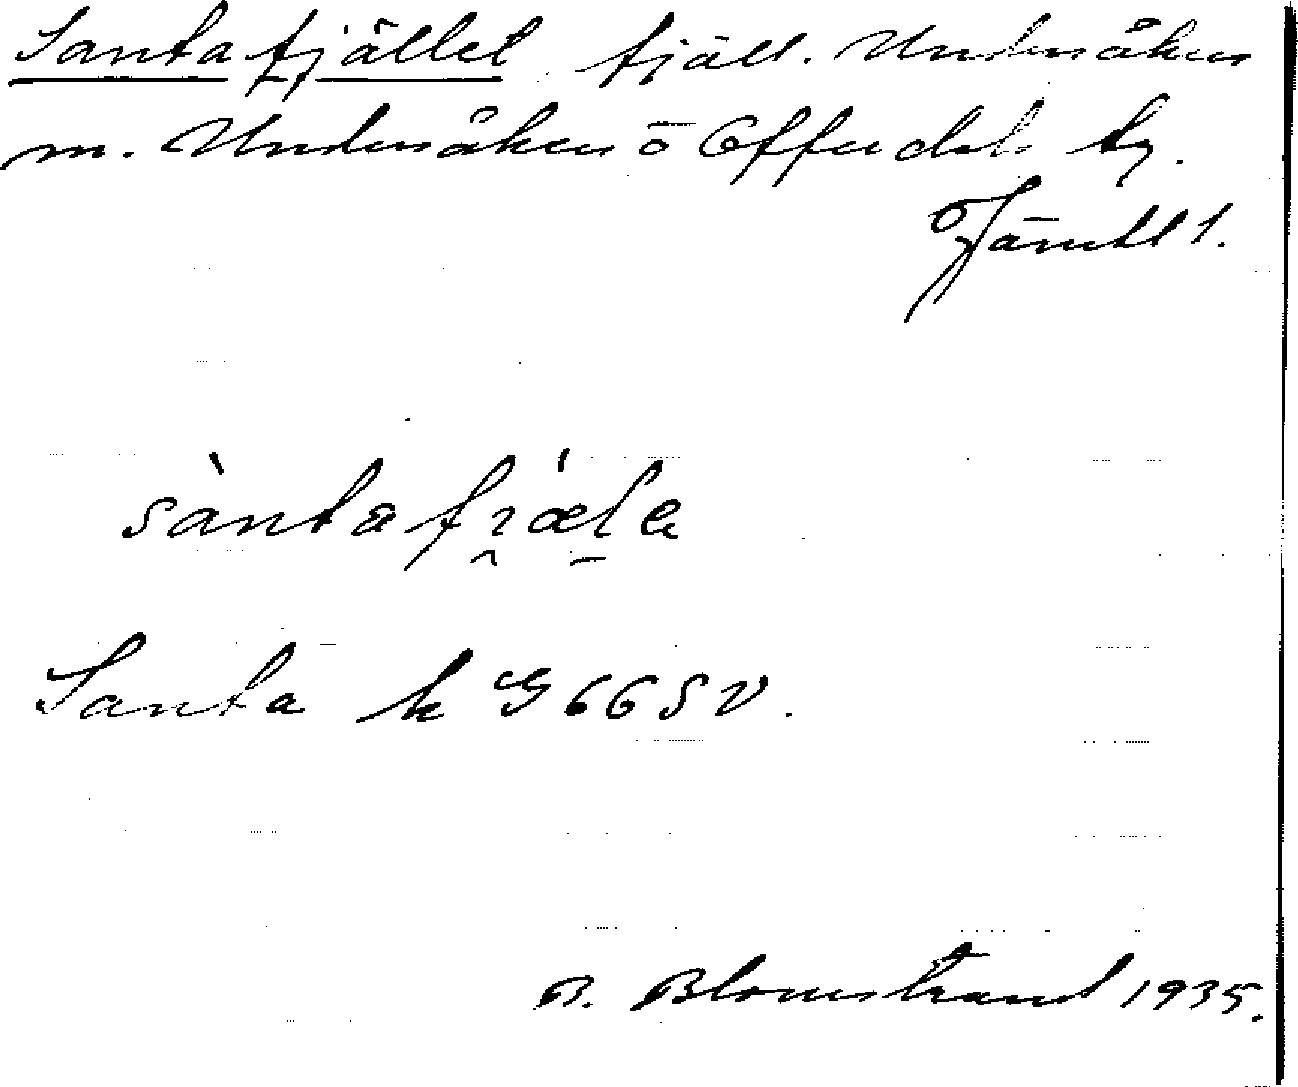 Santafjället fjäll. Undersåkers
m. Undersåkers o Offerdals tg.
Jämtl l.
sàntafjæ̀la
Santa k G 66 SV.
B. Blomstrand 1935.